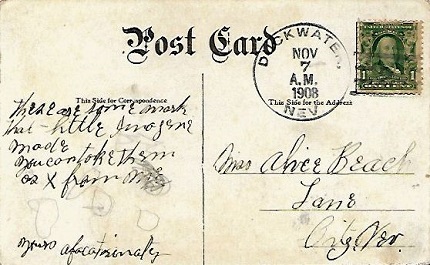 Post Card
DUCKWATER,
NOV
7
A.M.
1908
NEV.
1
1
This Side for Correspondence
This Side for the Address
these are some mark
that little Imogene
made
you can take them
as X from me
yours afecationatly
Miss Alice Beach
Lane
City, Nev.